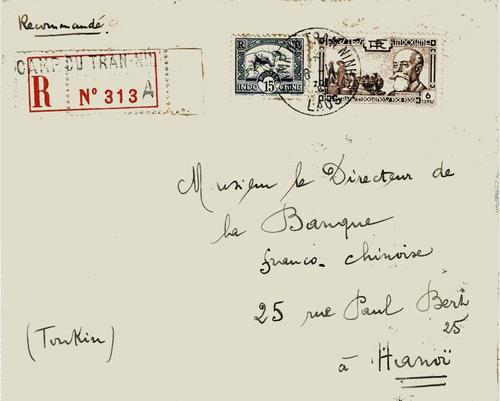 Recommandé
CAMP DU TRAN-NINH
R N° 313 A
INDO 15c CHINE
INDOCHINE
RF
6
LAOS
Monsieur le Directeur de
la Banque
franco-chinoise
25 rue Paul Bert
25
(Tonkin)
à Hanoï